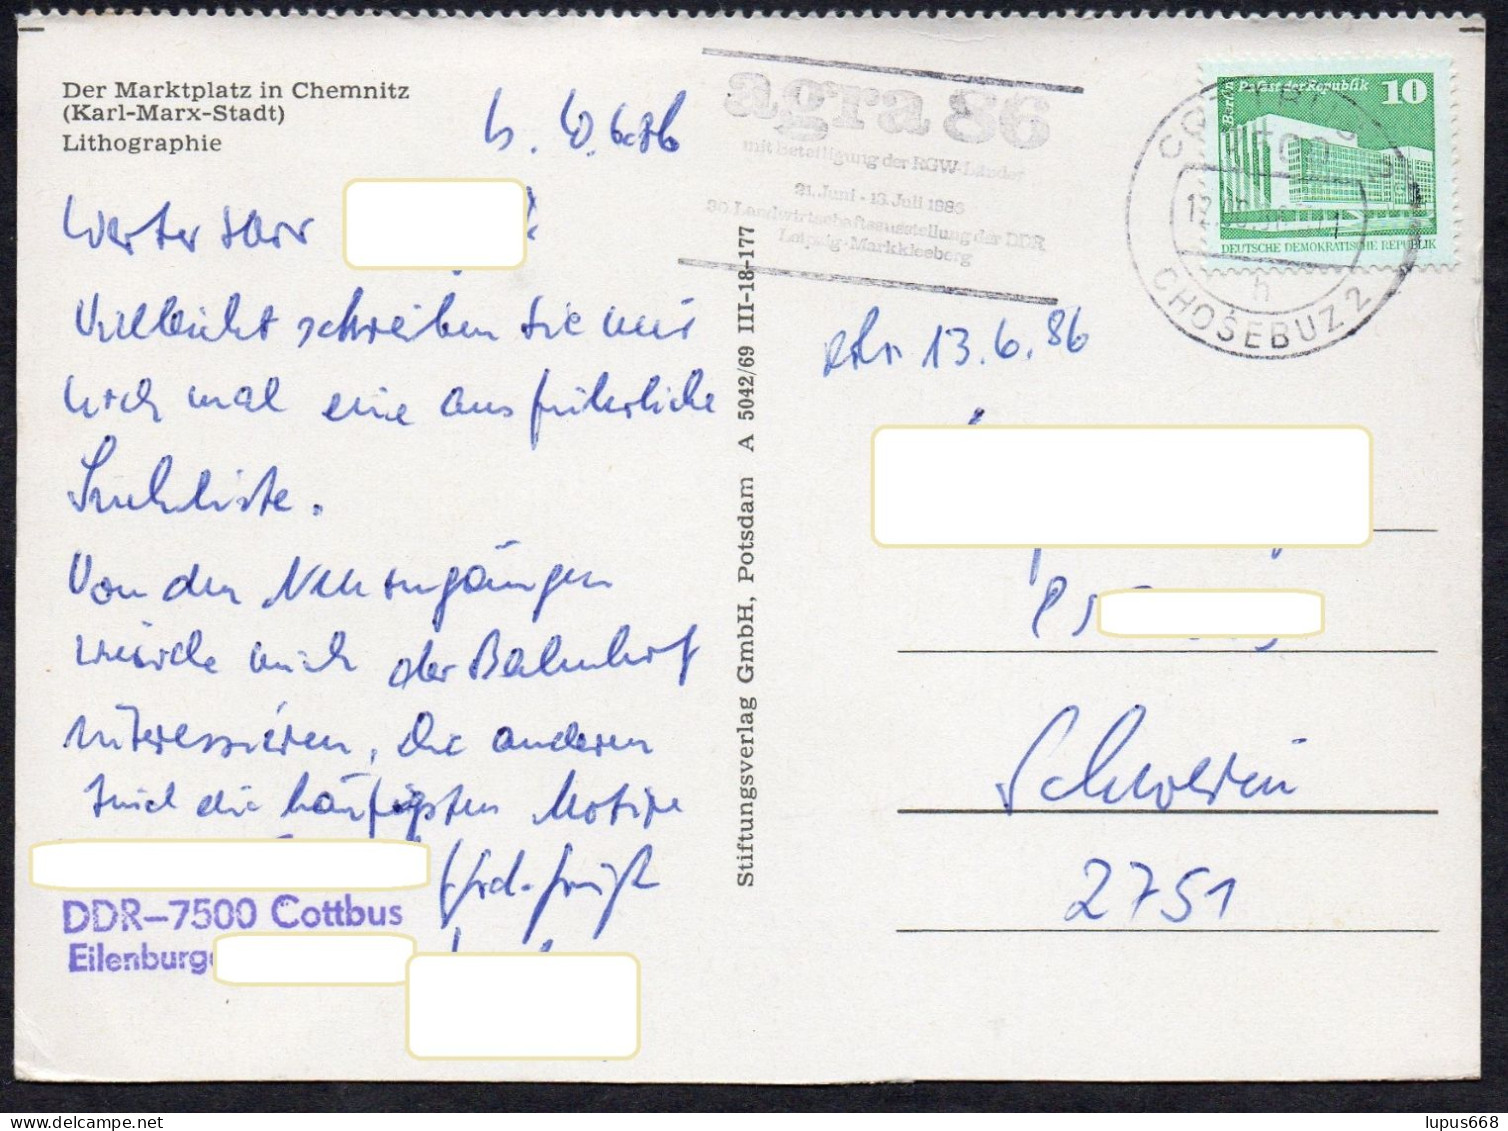 Der Marktplatz in Chemnitz
(Karl-Marx-Stadt)
Lithographie
Werter Herr
Vielleicht schreiben Sie mir
noch mal eine ausführliche
Suchliste.
Von den Neueingängen
würde mich der Bahnhof
interessieren, die anderen
sind die häufigsten Motive
DDR-7500 Cottbus
Eilenburge
Stiftungsverlag GmbH, Potsdam A 5042/69 III-18-177
agra 86
mit Beteiligung der RGW-Länder
21. Juni - 13. Juli 1986
30. Landwirtschaftsausstellung der DDR
Leipzig-Markkleeberg
Berlin, Palast der Republik 10
DEUTSCHE DEMOKRATISCHE REPUBLIK
COTTBUS
h
CHOŚEBUZ 2
13.6.86
Schwerin
2751
lupus668